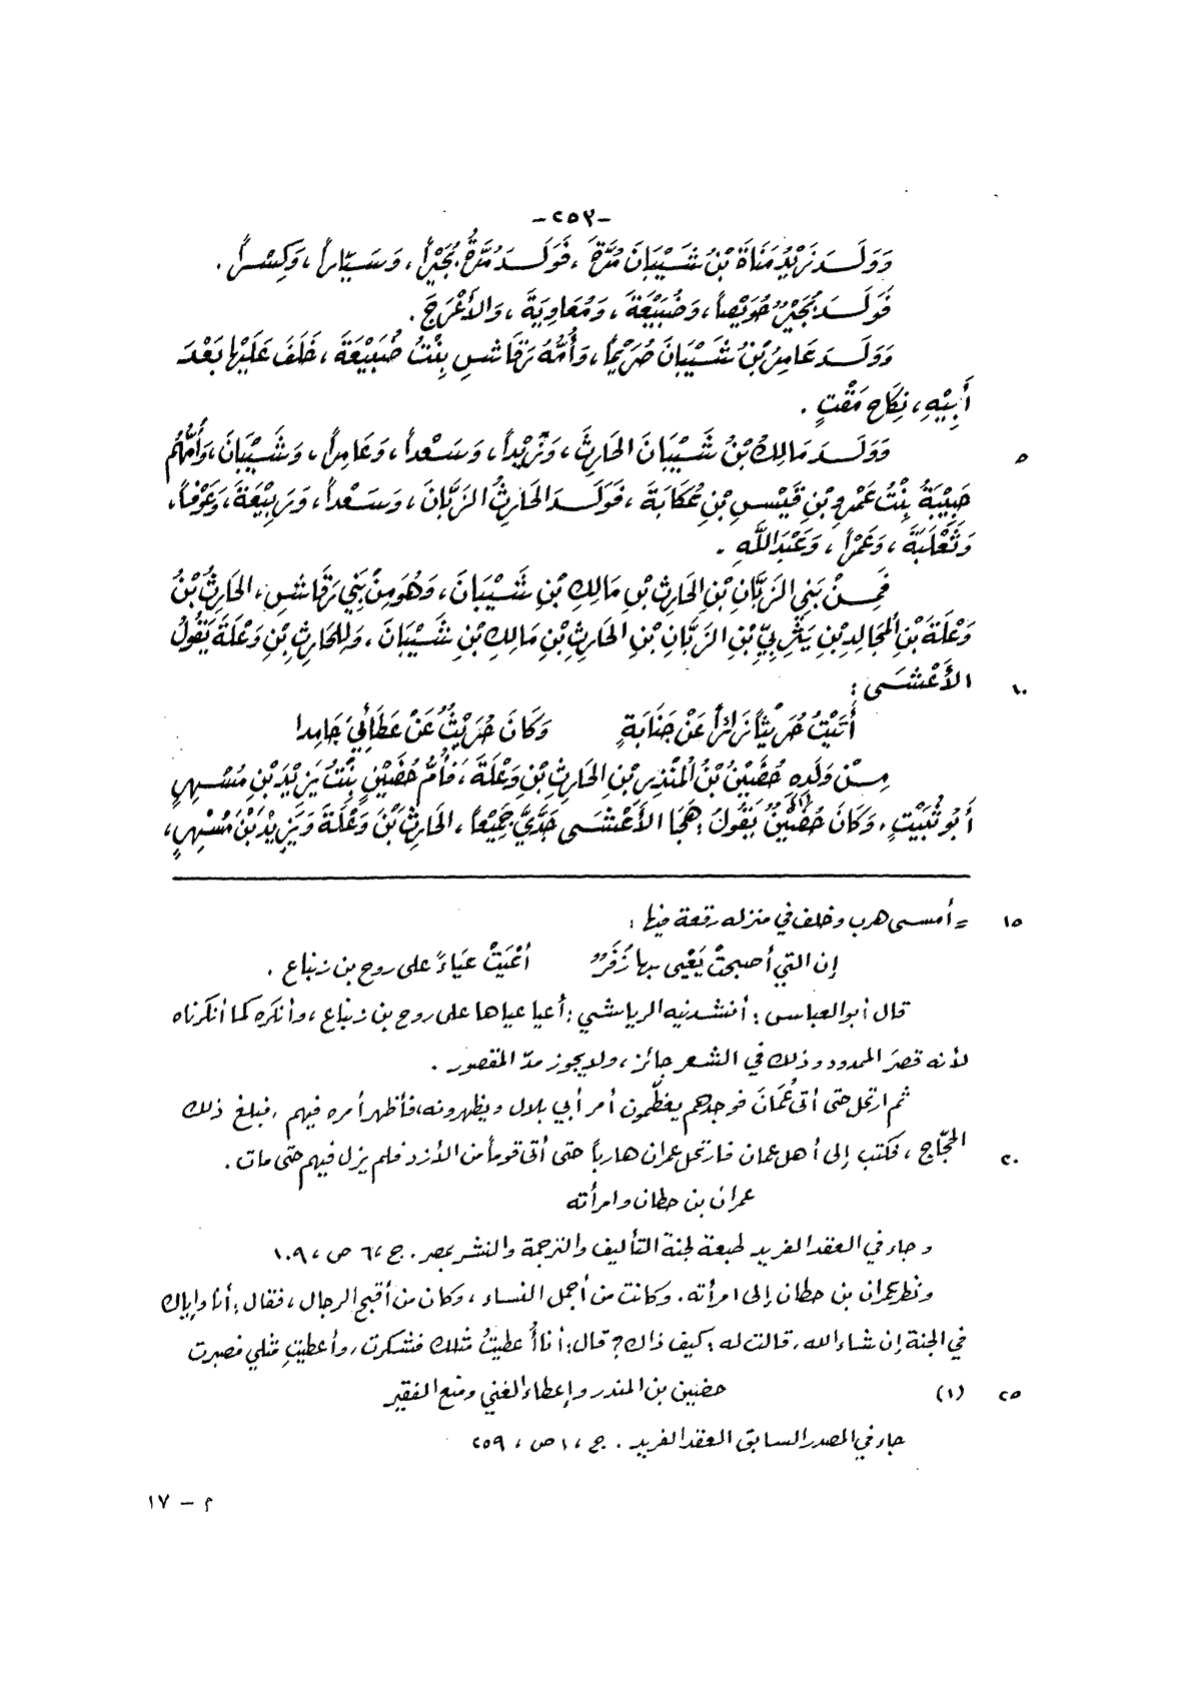 -٢٥٣-
وَوَلَدَ زَيْدُ مَنَاةَ بْنُ شَيْبَانَ مُرَّةَ ، فَوَلَدَ مُرَّةُ بُجَيْراً ، وَسَيَّاراً ، وَكِسْراً .
فَوَلَدَ بُجَيْرٌ حُوَيْصاً ، وَضُبَيْعَةَ ، وَمُعَاوِيَةَ ، وَالأَعْرَجَ .
وَوَلَدَ عَامِرُ بْنُ شَيْبَانَ صُرَيْماً ، وَأُمُّهُ رَقَاشِ بِنْتُ ضُبَيْعَةَ ، خَلَفَ عَلَيْهَا بَعْدَ
أَبِيْهِ ، نِكَاحَ مَقْتٍ .
٥ وَوَلَدَ مَالِكُ بْنُ شَيْبَانَ الحَارِثَ ، وَزَيْداً ، وَسَعْداً ، وَعَامِراً ، وَشَيْبَانَ ، وَأُمُّهُم
حَبِيْبَةُ بِنْتُ عَمْرِو بْنِ قَيْسِ بْنِ عُكَابَةَ ، فَوَلَدَ الحَارِثُ الزَّبَّانَ ، وَسَعْداً ، وَرَبِيْعَةَ ، وَعَوْفاً ،
وَثَعْلَبَةَ ، وَعَمْراً ، وَعَبْدَ اللَّهِ .
فَمِنْ بَنِي الزَّبَّانِ بْنِ الحَارِثِ بْنِ مَالِكِ بْنِ شَيْبَانَ ، وَهُوَ مِنْ بَنِي رَقَاشِ ، الحَارِثُ بْنُ
وَعْلَةَ بْنِ المُجَالِدِ بْنِ يَثْرِبِيِّ بْنِ الزَّبَّانِ بْنِ الحَارِثِ بْنِ مَالِكِ بْنِ شَيْبَانَ ، وَلِلحَارِثِ بْنِ وَعْلَةَ يَقُولُ
١٠ الأَعْشَى :
أَتَيْتُ حُرَيْثاً زَائِراً عَنْ جَنَابَةٍ وَكَانَ حُرَيْثٌ عَنْ عَطَائِيَ جَامِدا
مِنْ وَلَدِهِ حُضَيْنُ بْنُ المُنْذِرِ بْنِ الحَارِثِ بْنِ وَعْلَةَ ، فَأُمُّ حُضَيْنٍ بِنْتُ يَزِيْدَ بْنِ مُسْهِرٍ
أَبُو ثُبَيْتٍ ، وَكَانَ حُضَيْنٌ (١) يَقُولُ : هَجَا الأَعْشَى جَدَّيَّ جَمِيْعاً ، الحَارِثَ بْنَ وَعْلَةَ وَيَزِيْدَ بْنَ مُسْهِرٍ ،
١٥ = أمسى هرب وخلف في منزله رقعة فيها :
إن التي أصبحتْ يَعْيى بها زُفَرٌ أعْيَتْ عَيَاءً على روح بن زنباع .
قال أبو العباس : أنشدنيه الرياشي : أعيا عياها على روح بن زنباع ، وأنكره كما أنكرناه
لأنه قصرَ الممدود وذلك في الشعر جائز ، ولا يجوز مدّ المقصور .
ثم ارتحل حتى أتى عُمَانَ فوجدهم يعظّمون أمر أبي بلال ويظهرونه، فأظهر أمره فيهم ، فبلغ ذلك
٢٠ الحجّاج ، فكتب إلى أهل عمان فارتحل عمران هارباً حتى أتى قوماً من الأزد فلم يزل فيهم حتى مات .
عمران بن حطان وامرأته
وجاء في العقد الفريد طبعة لجنة التأليف والترجمة والنشر بمصر . ج ٦، ص ، ١٠٩
ونظر عمران بن حطان إلى امرأته . وكانت من أجمل النساء ، وكان من أقبح الرجال ، فقال : أنا وإياك
في الجنة إن شاء الله ، قالت له : كيف ذاك ؟ قال : أنا أُعطيتُ مثلك فشكرت ، وأعطيتِ مثلي فصبرت
٢٥ (١) حضين بن المنذر وإعطاء الغني ومنع الفقير
جاء في المصدر السابق العقد الفريد . ج ،١ ص ، ٢٥٩
م - ١٧